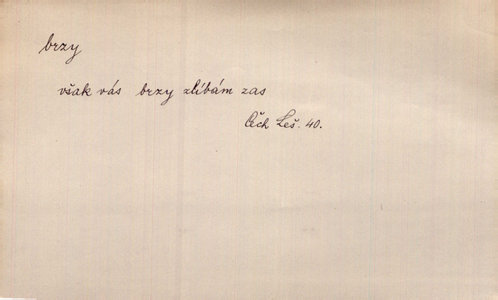 brzy
však vás brzy zlíbám zas
Čch Leš. 40.